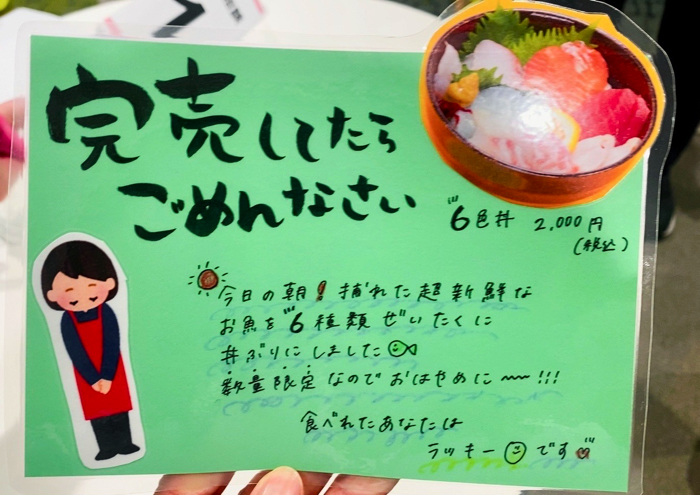 完売してたら
ごめんなさい
6色丼 2,000円
(税込)
今日の朝!捕れた超新鮮な
お魚を6種類ぜいたくに
丼ぶりにしました
数量限定なのでおはやめに〜!!!
食べれたあなたは
ラッキーです